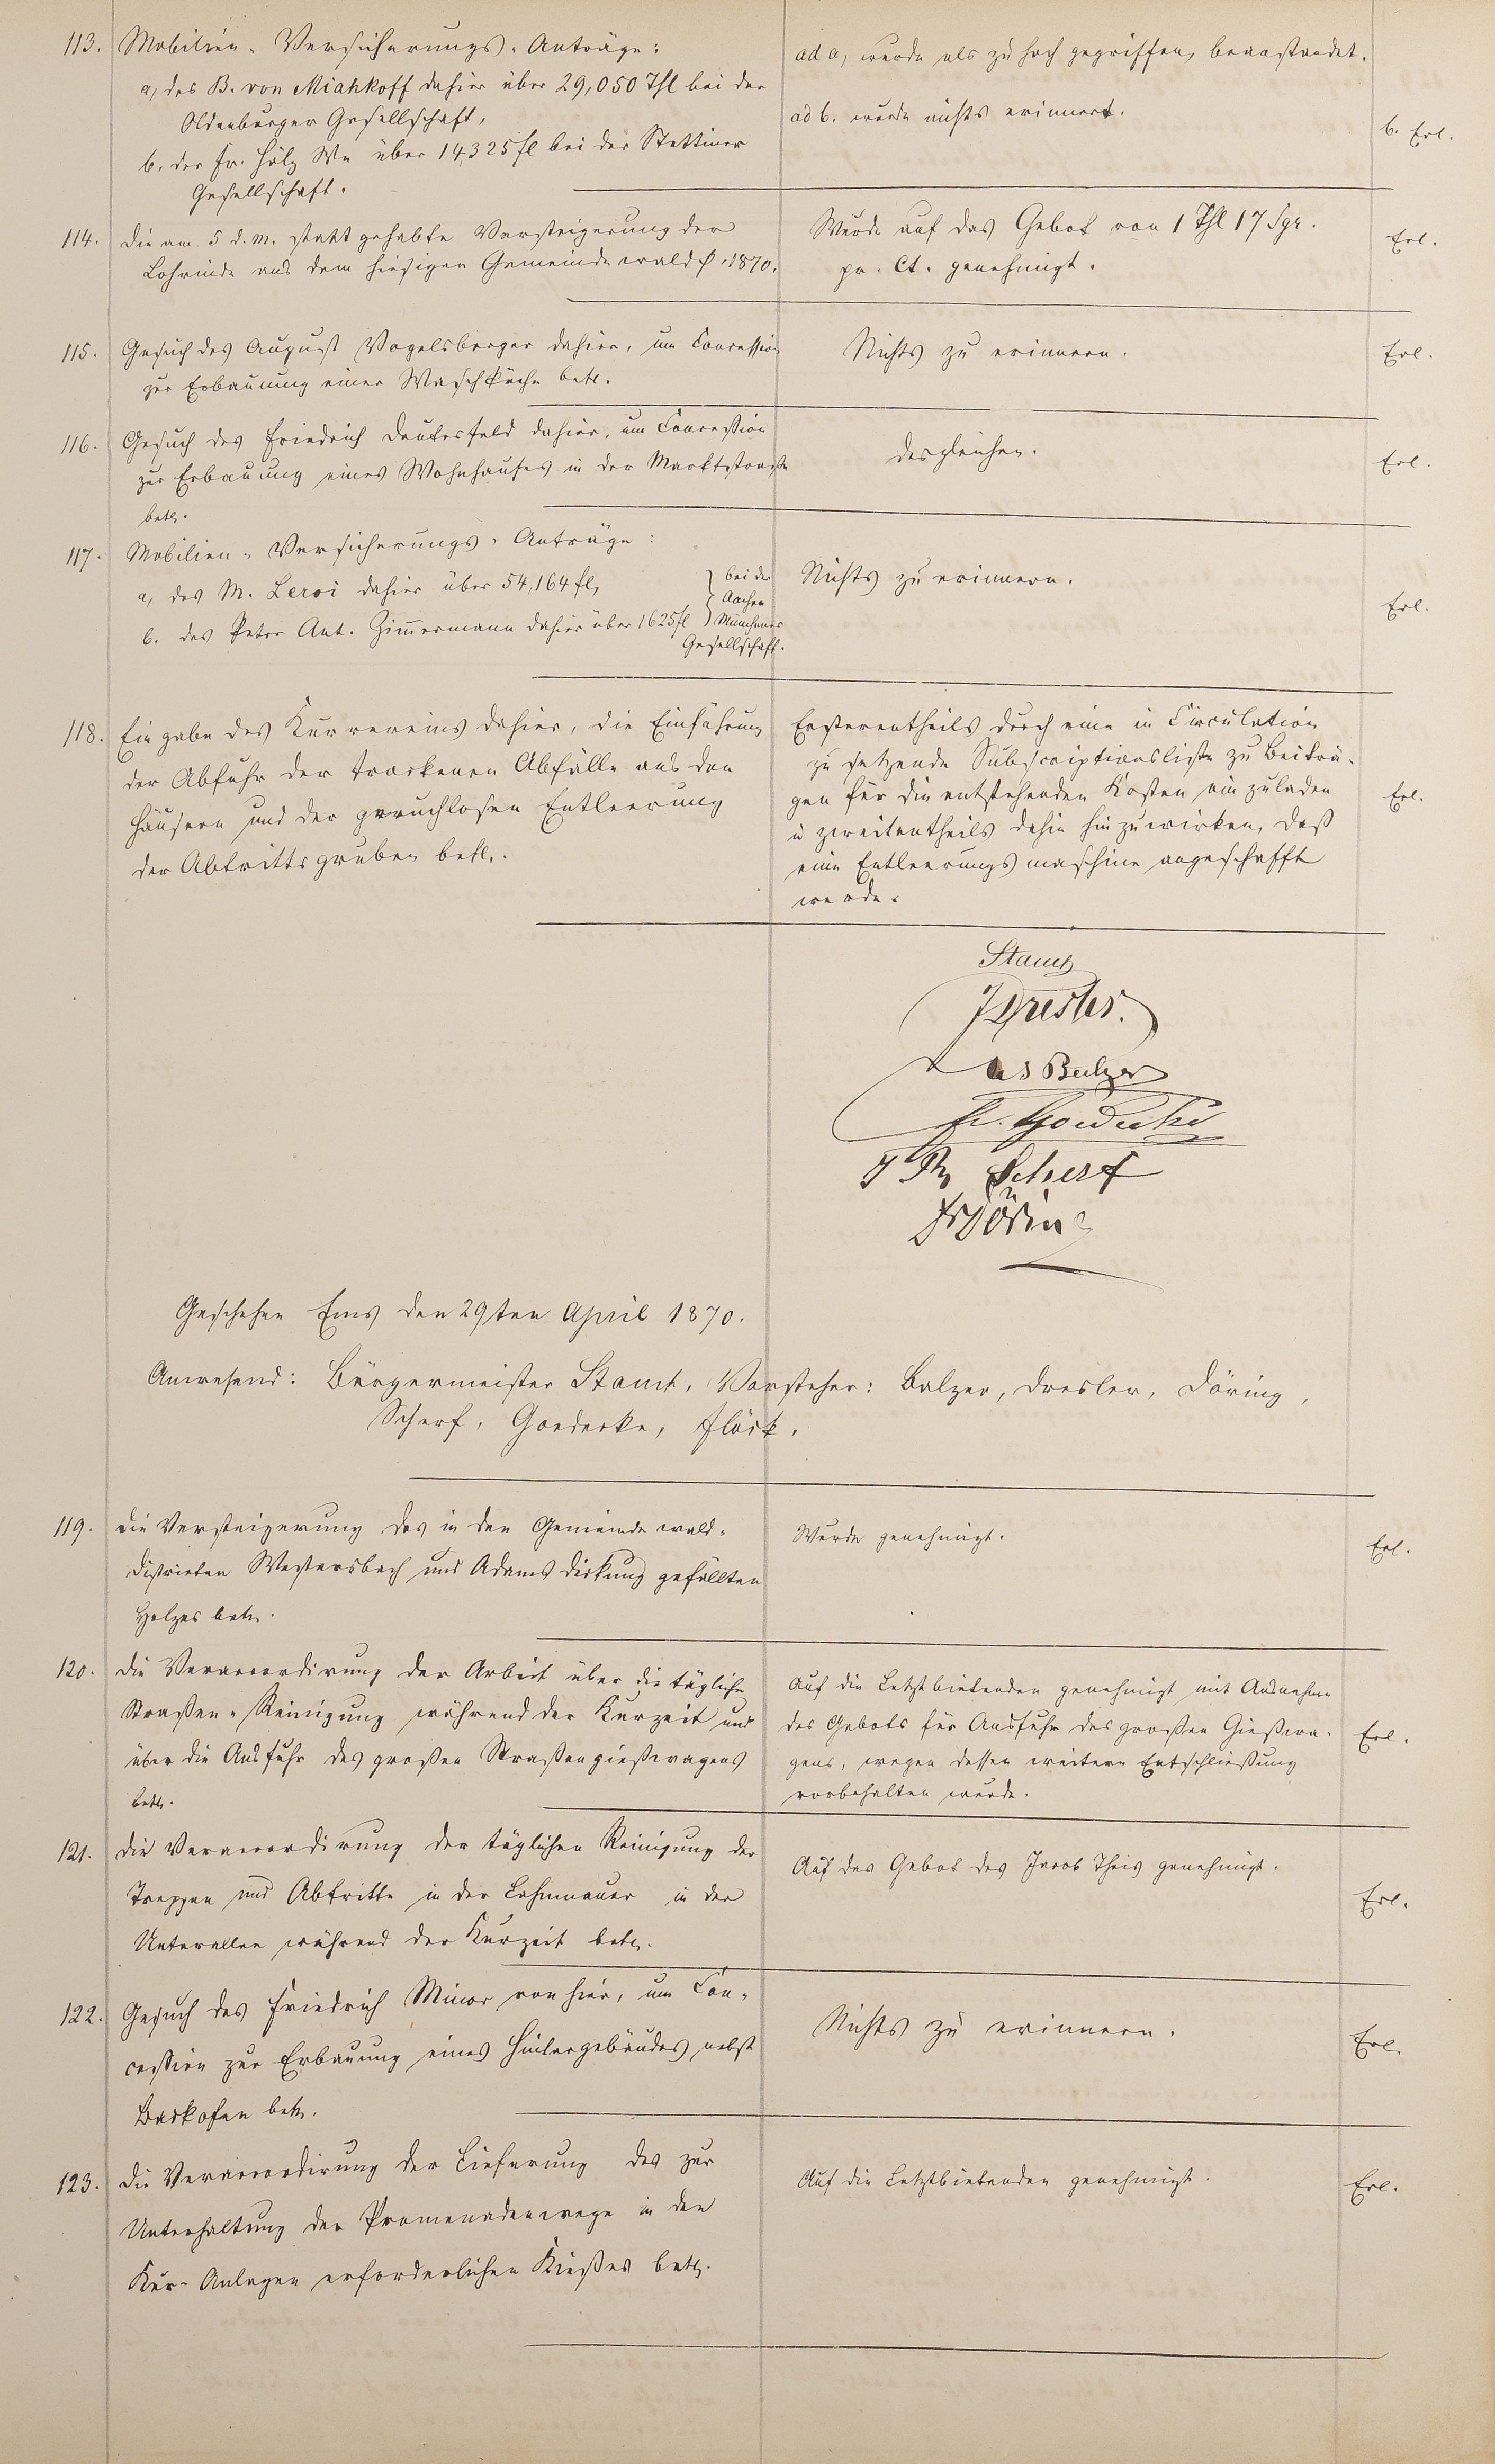 113. Mobilien-Versicherungs-Anträge:
a, des B. von Miahkoff dahier über 29,050 Thl bei der
Oldenburger Gesellschaft,
b. der Fr. Hölz We über 14325 fl bei der Stettiner
Gesellschaft.
ad a, wurde als zu hoch gegriffen, beanstandet.
ad b. wurde nichts erinnert.
b. Erl.
114. Die am 5 d. M. statt gehabte Versteigerung der
Lohrinde aus dem hiesigen Gemeindewald p. 1870.
Wurde auf das Gebot von 1 Thl 17 Sgr.
pr. Ct. genehmigt.
Erl.
115. Gesuch des August Vogelsberger dahier, um Concession
zur Erbauung einer Waschküche betr.
Nichts zu erinnern.
Erl.
116. Gesuch des Friedrich Deutesfeld dahier, um Concession
zur Erbauung eines Wohnhauses in der Marktstraße
betr.
desgleichen.
Erl.
117. Mobilien-Versicherungs-Anträge:
a, des M. Leroi dahier über 54,164 fl,
b. des Peter Ant. Zimmermann dahier über 1625 fl
bei der
Aachen
Münchener
Gesellschaft.
Nichts zu erinnern.
Erl.
118. Eingabe des Kurvereins dahier, die Einführung
der Abfuhr der trockenen Abfälle aus den
Häusern und der geruchlosen Entleerung
der Abtrittsgruben betr.
Ersterentheils durch eine in Circulation
zu setzende Subscriptionsliste zu Beiträ-
gen für die entstehenden Kosten einzuladen
u zweitentheils dahin hinzuwirken, daß
eine Entleerungsmaschine angeschafft
werde.
Erl.
Stamt
J Dresler.
Balzer
Fr. Goedecke
J Ph Scherf
Döring
Geschehen Ems den 29ten April 1870.
Anwesend: Bürgermeister Stamt, Vorsteher: Balzer, Dresler, Döring,
Scherf, Goedecke, Flöck.
119. Die Versteigerung des in den Gemeindewald-
distrikten Westersbach und Adams dickung gefällten
Holzes betr.
Wurde genehmigt.
Erl.
120. Die Veraccordirung der Arbeit über die tägliche
Straßen-Reinigung während der Kurzeit und
über die Ausfuhr des großen Straßengießwagens
betr.
Auf die Letztbietenden genehmigt mit Ausnahme
des Gebots für Ausfuhr des großen Gießwa-
gens, wegen dessen weitere Entschließung
vorbehalten wurde.
Erl.
121. Die Veraccordirung der täglichen Reinigung der
Treppen und Abtritte in der Lahnmauer in der
Unterallee während der Kurzeit betr.
Auf das Gebot des Jacob Theis genehmigt.
Erl.
122. Gesuch des Friedrich Minor von hier, um Con-
cession zur Erbauung eines Hintergebäudes nebst
Backofen betr.
Nichts zu erinnern.
Erl.
123. Die Veraccordirung der Lieferung des zur
Unterhaltung der Promenadenwege in den
Kur-Anlagen erforderlichen Kießes betr.
Auf die Letztbietenden genehmigt.
Erl.